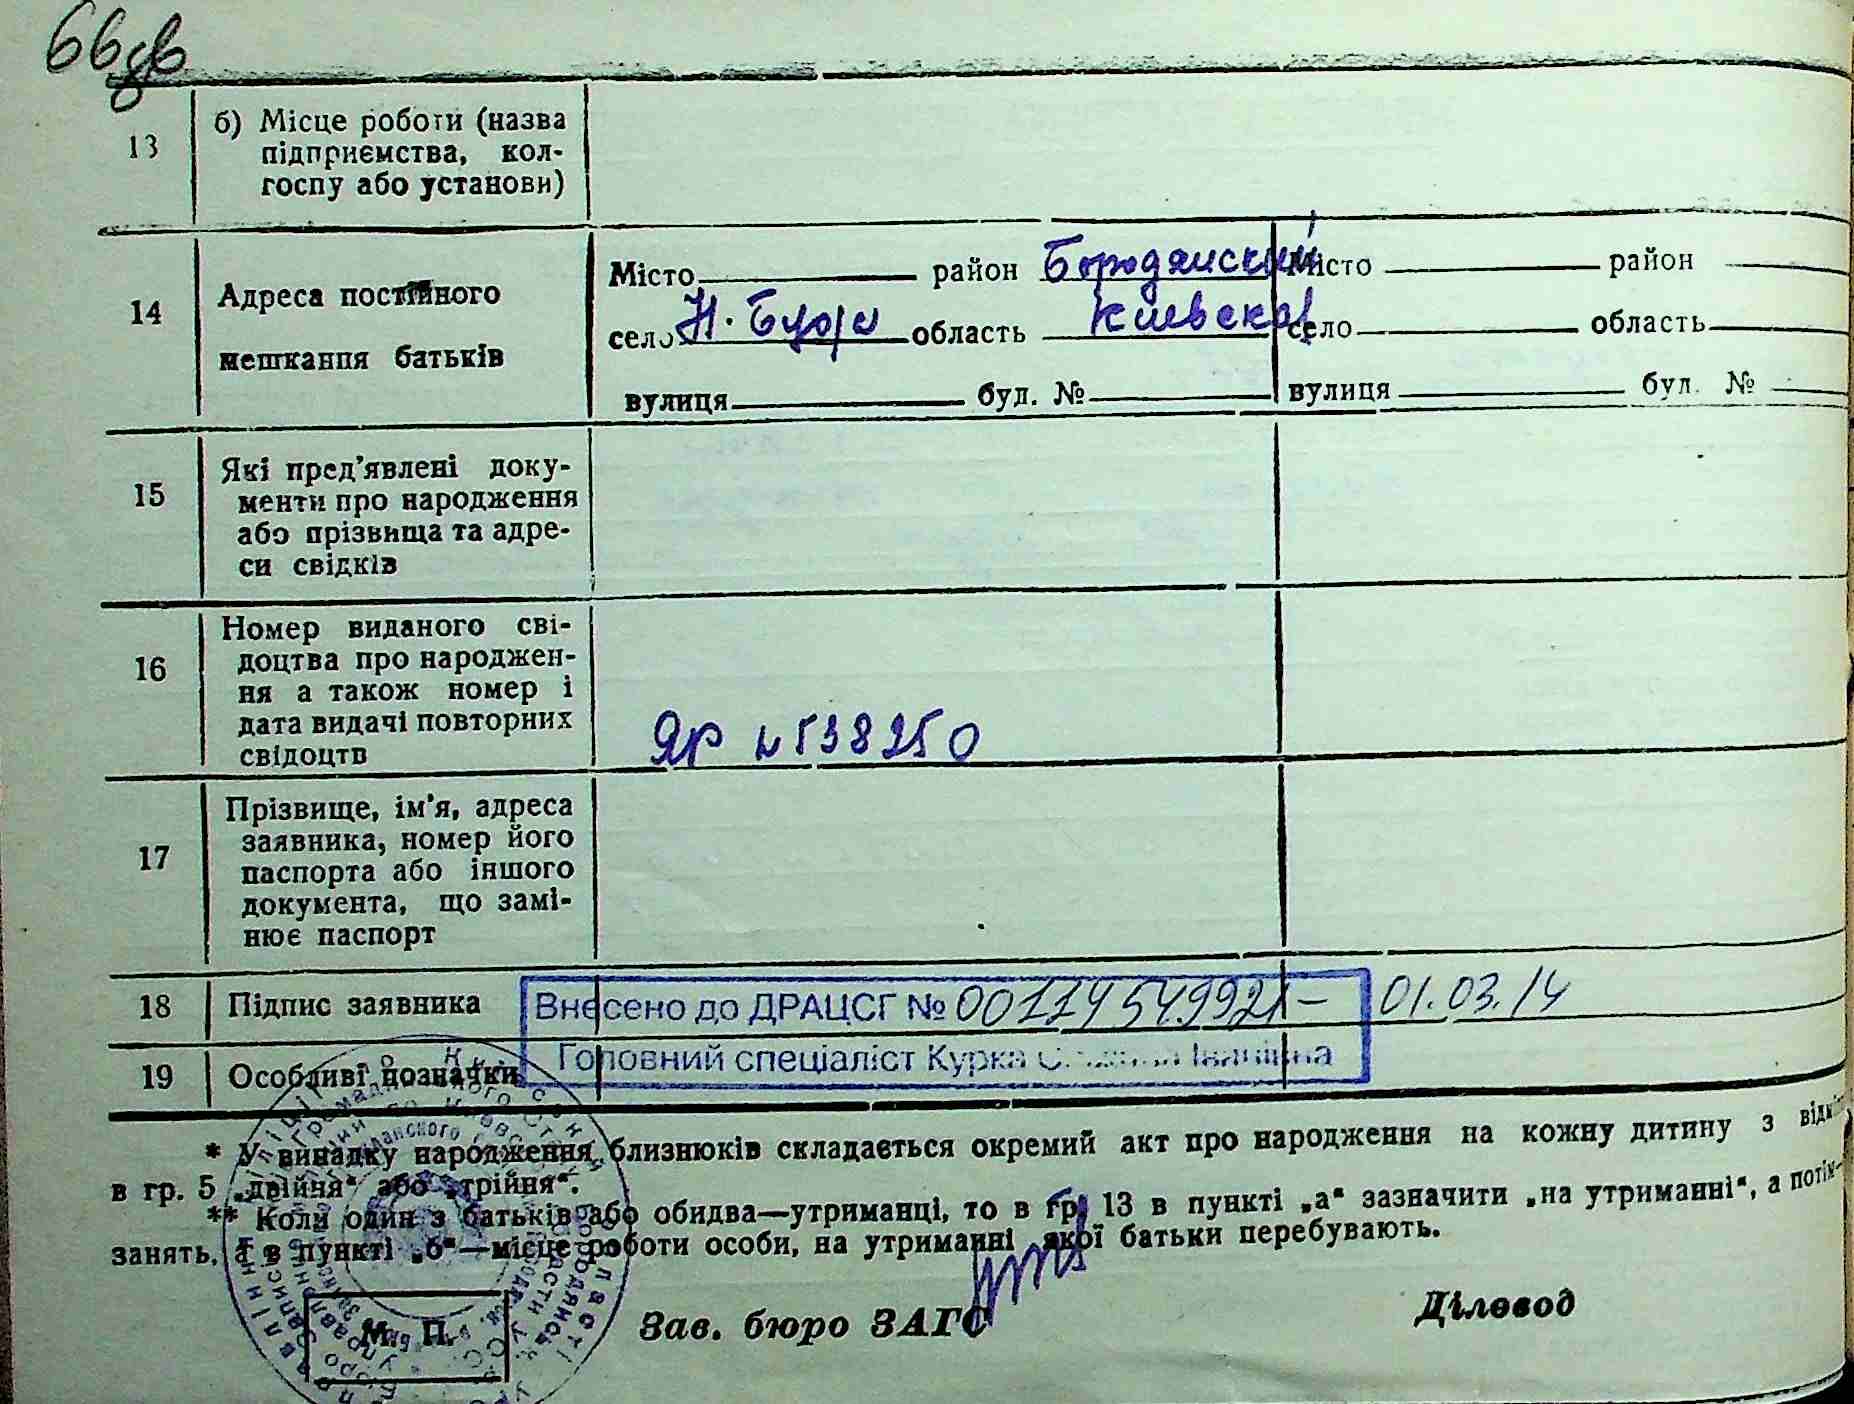 66зв
13
б) Місце роботи (назва
підприємства, кол-
госпу або установи)
14
Адреса постійного
мешкання батьків
Місто район Бородянский
село Н. Буда область Киевская
вулиця буд. №
Місто район
село область
вулиця буд. №
15
Які пред'явлені доку-
менти про народження
або прізвища та адре-
си свідків
16
Номер виданого сві-
доцтва про народжен-
ня а також номер і
дата видачі повторних
свідоцтв
ЯР № 538250
17
Прізвище, ім'я, адреса
заявника, номер його
паспорта або іншого
документа, що замі-
нює паспорт
18
Підпис заявника
Внесено до ДРАЦСГ № 00114549921 - 01.03.14
Головний спеціаліст Курка Іванівна
19
Особливі позначки
* У випадку народження близнюків складається окремий акт про народження на кожну дитину з
в гр. 5 „двійня“ або „трійня“.
** Коли один з батьків або обидва—утриманці, то в гр. 13 в пункті „а“ зазначити „на утриманні“, а потім—
занять, а в пункті „б“—місце роботи особи, на утриманні якої батьки перебувають.
М. П.
Зав. бюро ЗАГС
Діловод